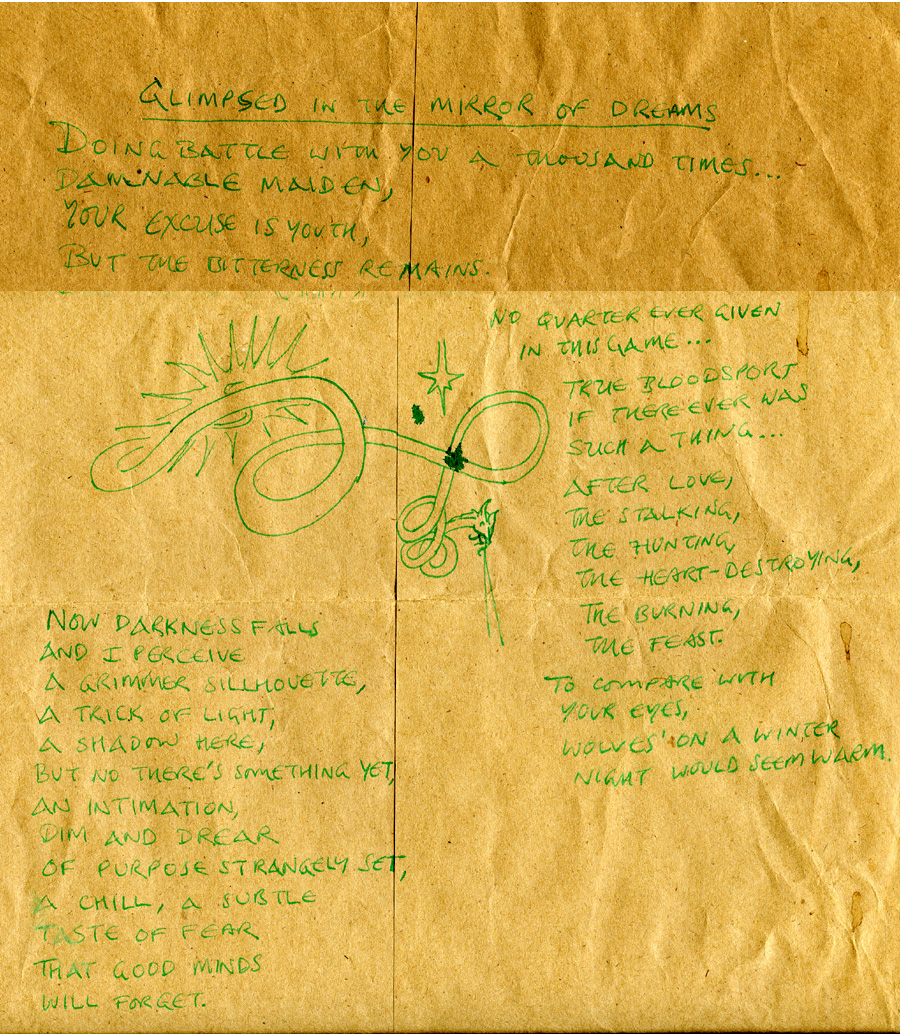 GLIMPSED IN THE MIRROR OF DREAMS
DOING BATTLE WITH YOU A THOUSAND TIMES...
DAMNABLE MAIDEN,
YOUR EXCUSE IS YOUTH,
BUT THE BITTERNESS REMAINS.
NO QUARTER EVER GIVEN
IN THIS GAME...
TRUE BLOODSPORT
IF THERE EVER WAS
SUCH A THING...
AFTER LOVE,
THE STALKING,
THE HUNTING,
THE HEART-DESTROYING,
THE BURNING,
THE FEAST.
TO COMPARE WITH
YOUR EYES,
WOLVES' ON A WINTER
NIGHT WOULD SEEM WARM.
NOW DARKNESS FALLS
AND I PERCEIVE
A GRIMMER SILLHOUETTE,
A TRICK OF LIGHT,
A SHADOW HERE,
BUT NO THERE'S SOMETHING YET,
AN INTIMATION,
DIM AND DREAR
OF PURPOSE STRANGELY SET,
A CHILL, A SUBTLE
TASTE OF FEAR
THAT GOOD MINDS
WILL FORGET.